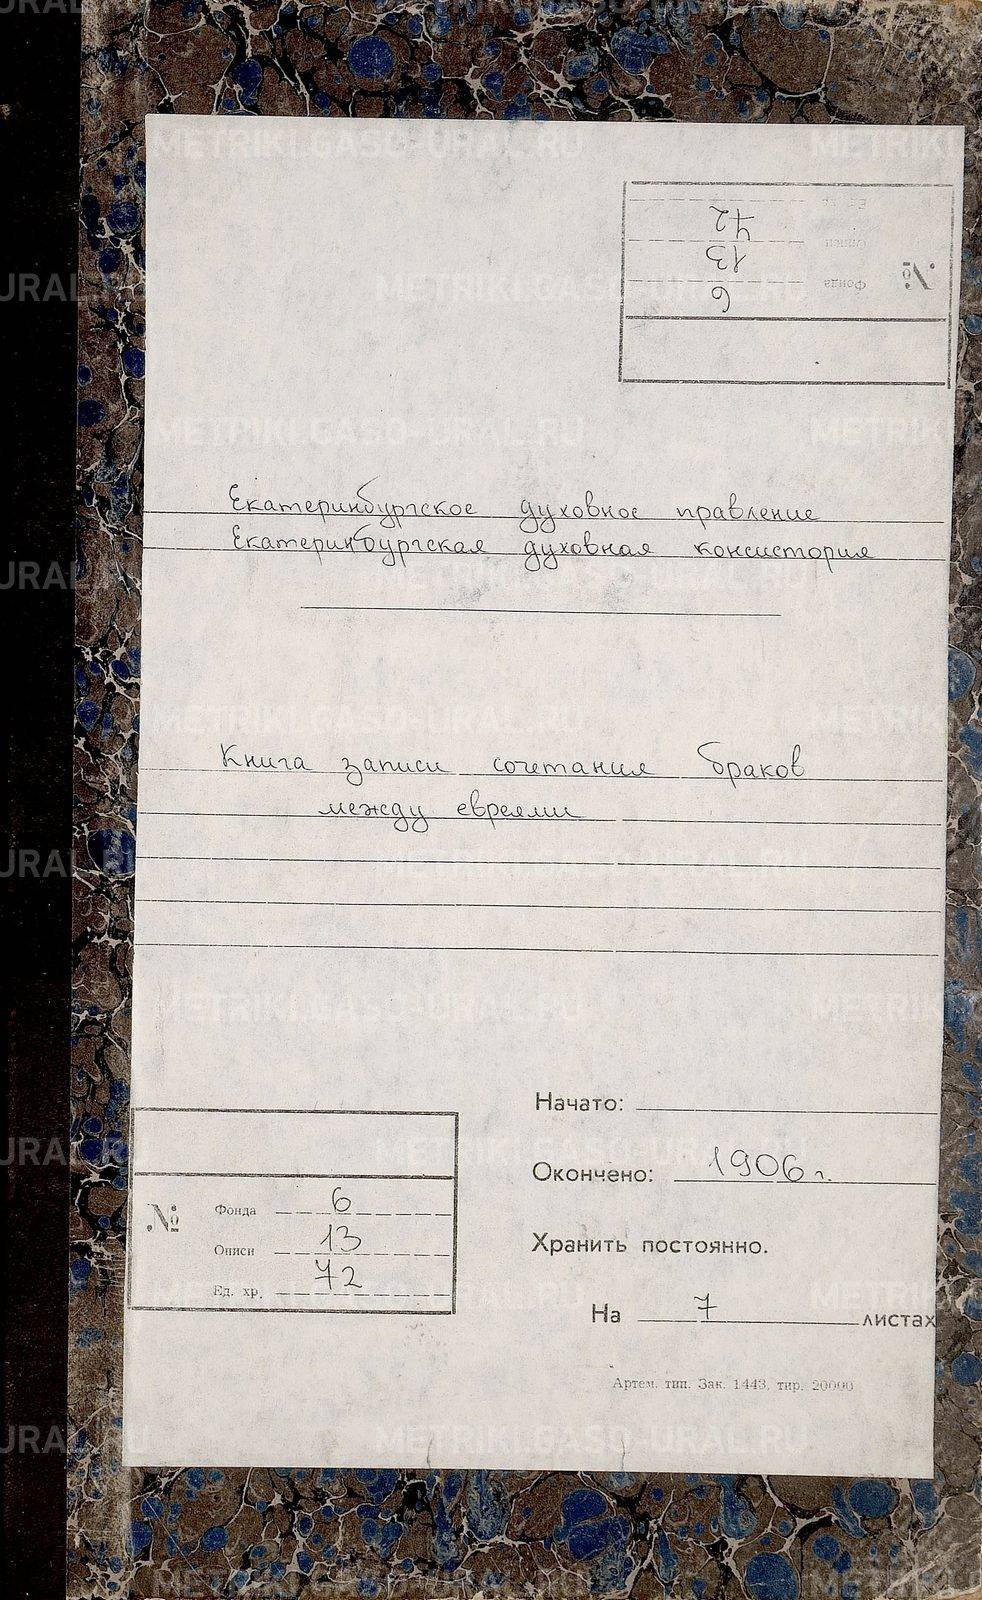 72
13
6
№
Фонда
Описи
Ед. хр.
Екатеринбургское духовное правление
Екатеринбургская духовная консистория
Книга записи сочетания браков
между евреями
Начато:
Окончено: 1906 г.
Хранить постоянно.
На 7 листах
№
Фонда 6
Описи 13
Ед. хр. 72
Артем. тип. Зак. 1443, тир. 20000
METRIKI.GASO-URAL.RU